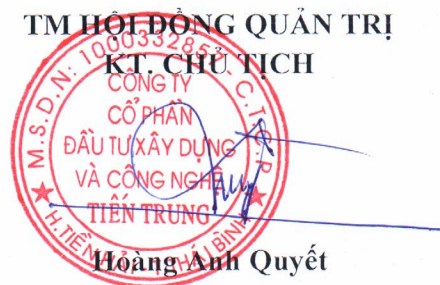 TM HỘI ĐỒNG QUẢN TRỊ
KT. CHỦ TỊCH
M.S.D.N: 1000332857 - C.T.C.P
CÔNG TY
CỔ PHẦN
ĐẦU TƯ XÂY DỰNG
VÀ CÔNG NGHỆ
TIẾN TRUNG
H. TIỀN HẢI - T. THÁI BÌNH
Hoàng Anh Quyết